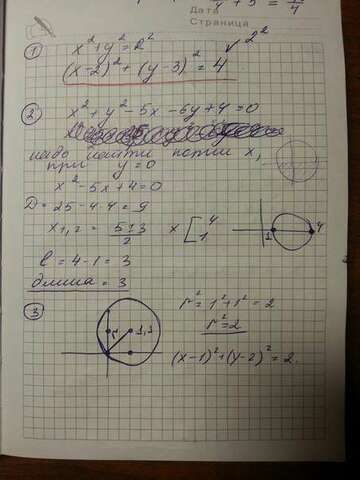 Дата
Страница
4 + 5 = 4
1
x² + y² = 2²
(x-2)² + (y-3)² = 4 ✓ 2²
2
x² + y² - 5x - 6y + 4 = 0
надо найти x,
при y = 0
x² - 5x + 4 = 0
D = 25 - 4·4 = 9
x₁,₂ = 5±3/2 x [ 4 1
1 4
l = 4 - 1 = 3
длина = 3
3
r² = 1² + 1² = 2
r 1,1
r² = 2
(x-1)² + (y-2)² = 2.